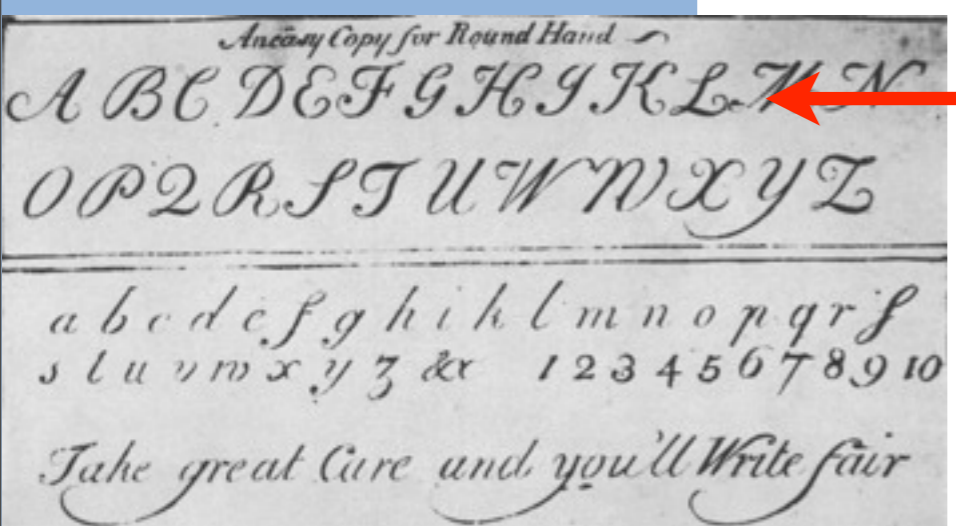 An easy Copy for Round Hand
A B C D E F G H I K L M N
O P Q R S T U W W X Y Z
a b c d e f g h i k l m n o p q r ſ
s t u v w x y z &c 1 2 3 4 5 6 7 8 9 10
Take great Care and you'll Write fair